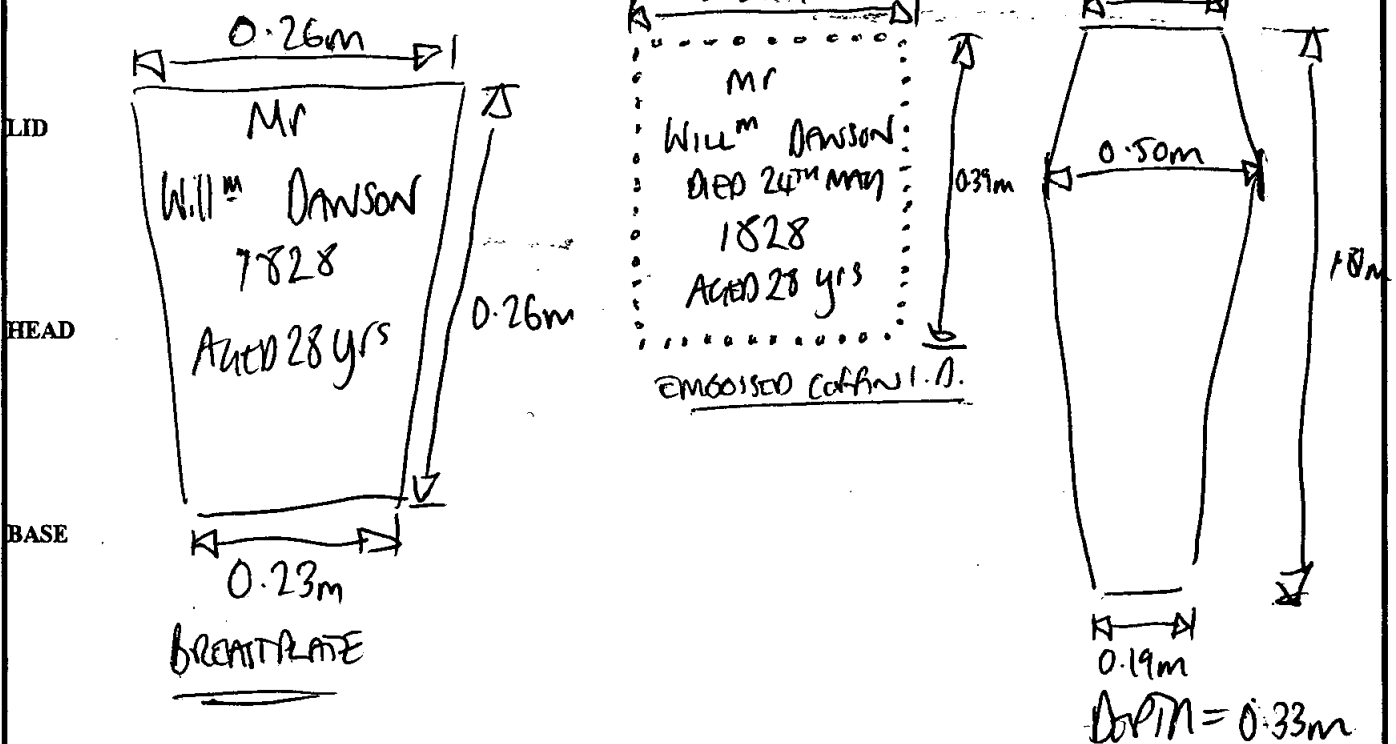 LID
HEAD
BASE
0.26m
Mr
Will^m DAWSON
1828
AGED 28 yrs
0.26m
0.23m
BREASTPLATE
Mr
WILL^m DAWSON
DIED 24TH MAY
1828
AGED 28 yrs
0.39m
EMBOSSED COFFIN I.D.
0.50m
0.19m
DEPTH = 0.33m